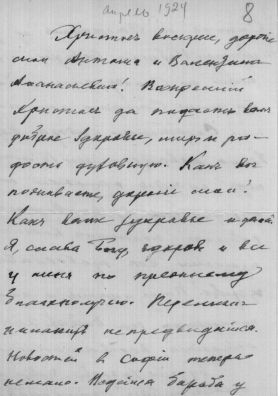 апрель 1924
8
Христосъ воскресе, дорогіе
мои Антонъ и Валентина
Афанасьевичи! Воскресшій
Христосъ да подастъ вамъ
доброе здоровье, миръ и ра-
дость духовную. Какъ Вы
поживаете, дорогіе мои?
Какъ ваше здоровье и дела?
Я, слава Богу, здоровъ и все
у меня по прежнему
благополучно. Перемѣнъ
никакихъ не предвидится.
Новостей в Софіи теперь
немало. Борьба у